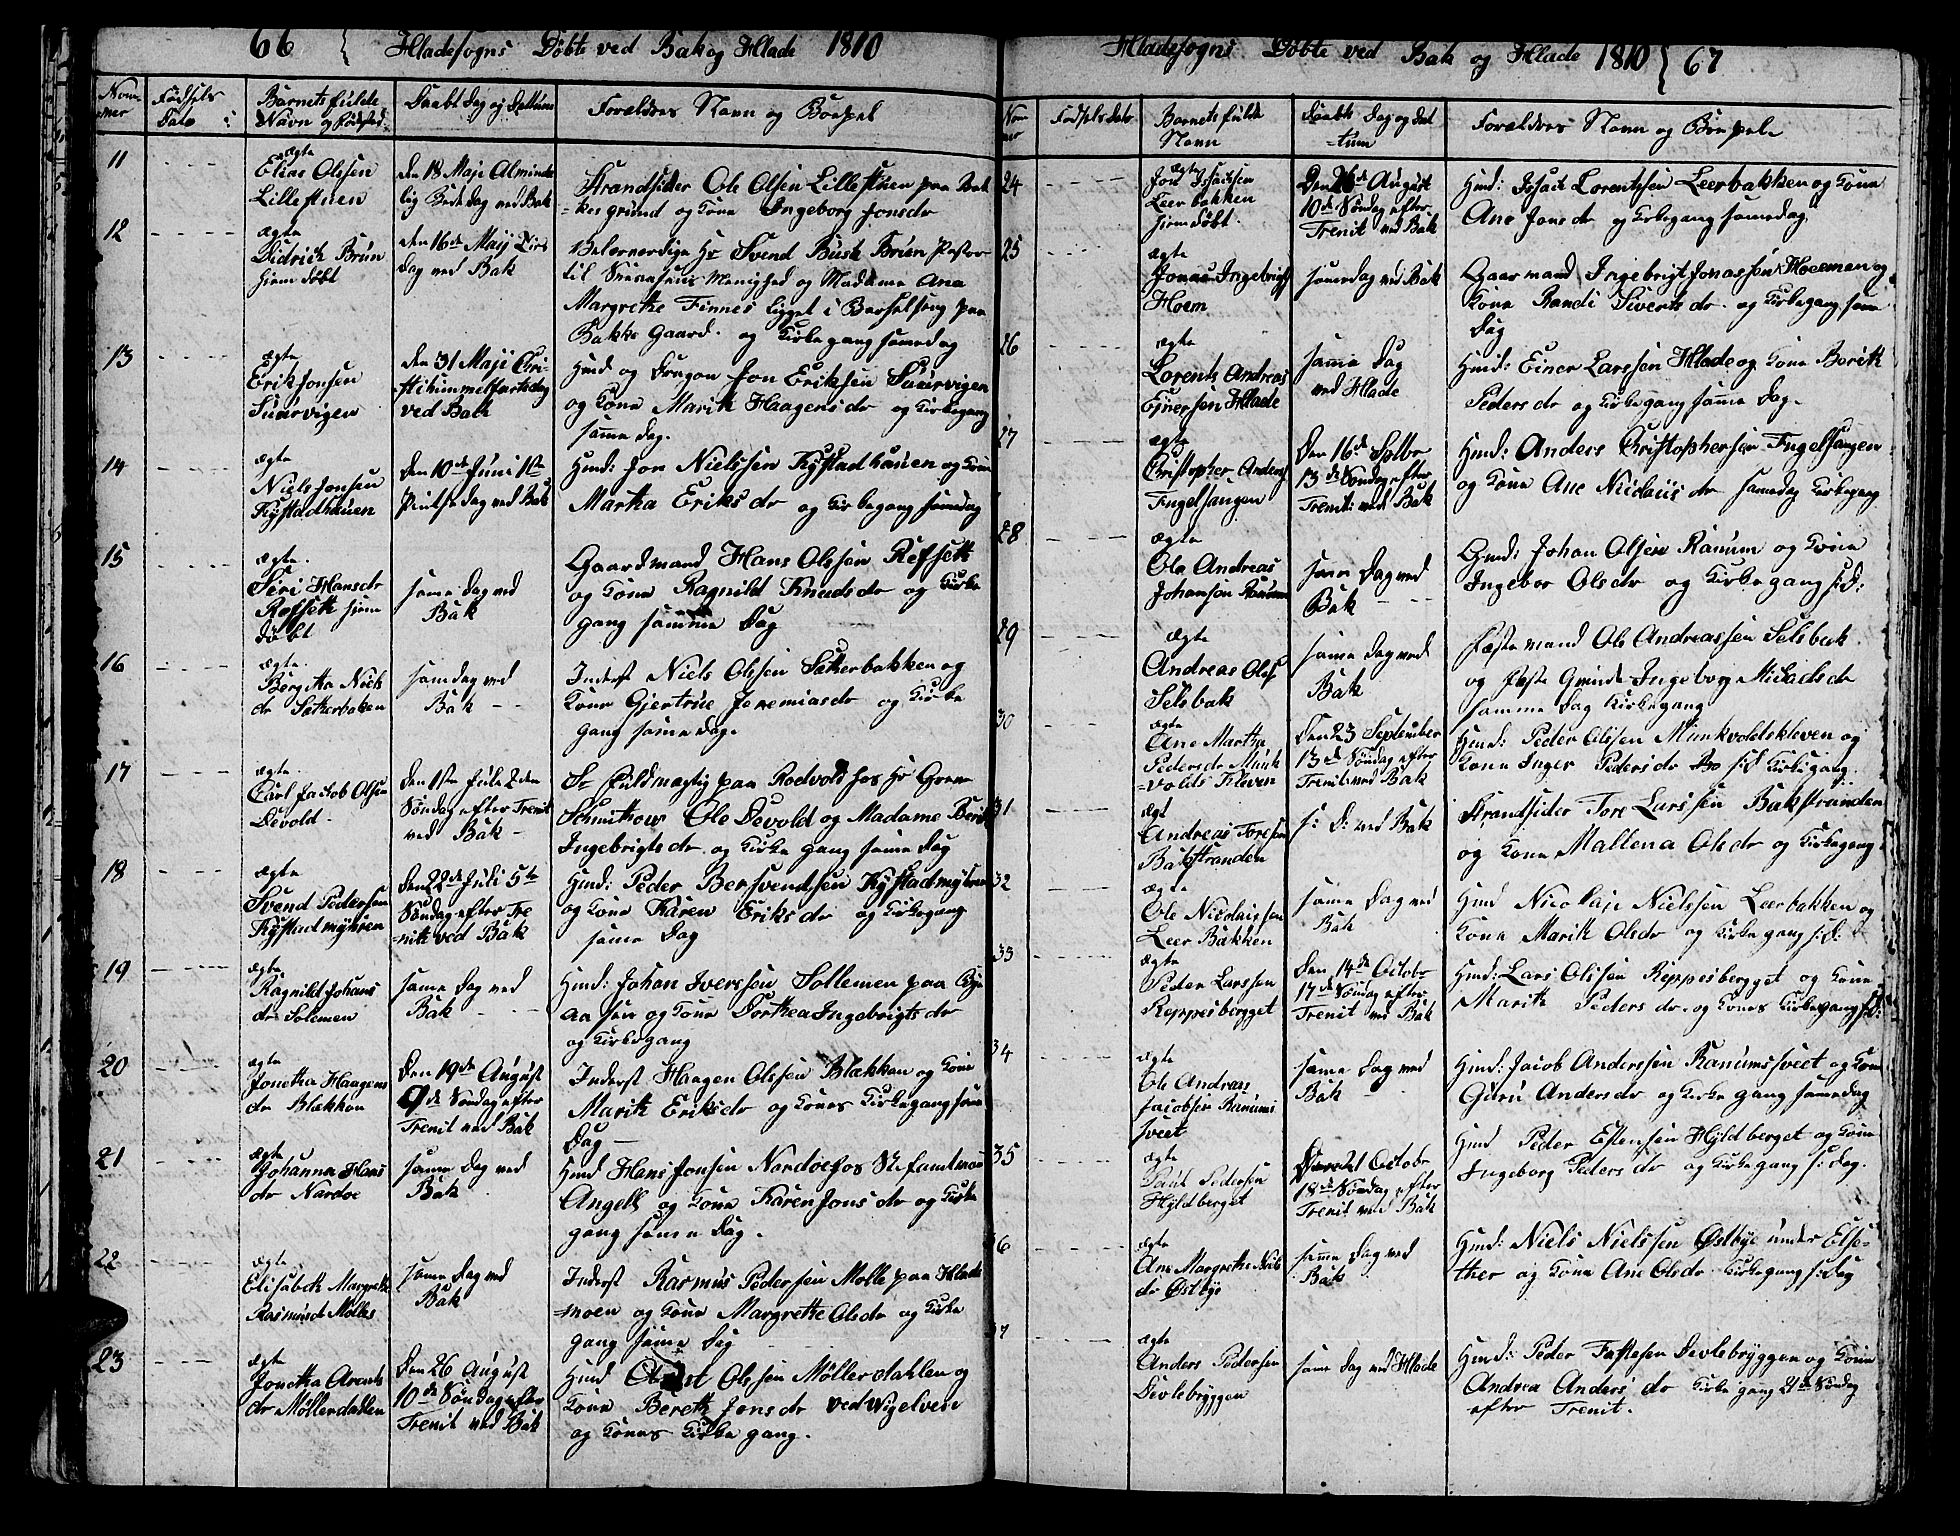 66 { Hladesogns Døbte ved Bak og Hlade 1810
Nom-
mer
Fødsels
Dato
Barnets fulde
Navn og fødsted
Daabt Dag og Dattum
Forældres Navn og Bopæl
11
ægte
Elias Olsen
Lillestuen
den 18 Maji Alminde
lig Bededag ved Bak
Strandsider Ole Olsen Lillestuen paa Bak
=kes grund og Kone Ingeborg Jonsdr
12
ægte
Didrick Brun
hiemdøbt
den 16de Maij Tirs
dag ved Bak
Velærverdige Hr Svend Busk Brun Pastor
til Menighed og Madame Ana
Margrethe Finnes ligget i Barselseng paa
Bakke Gaard. og Kirkegang samedag
13
ægte
Erik Jonsen
Suurvigen
den 31 Maji Chri-
stihimmelfartsdag
ved Bak
Hmd og Dragon Jon Eriksen Suurvigen
og Kone Marit Haagensdr og Kirkegang
samme dag.
14
ægte
Niels Jonsen
Kystadhauen
den 10de Juni 1ste
Pintsedag ved Bak
Hmd: Jon Nielssen Kystadhauen og Kone
Martha Eriksdr og Kirkegang samedag
15
ægte.
Siri Hansdr
Refseth hiem
døbt
same Dag ved
Bak
Gaardmand Hans Olssen Refseth
og Kone Ragnild Knudsdr og Kirke
gang samme Dag
16
ægte.
Bergitta Niels
dr Sæterbaken
samdag ved
Bak - -
Inderst Niels Olssen Sæterbakken og
Kone Gjertrue Jeremiasdr og Kirke
gang same dag.
17
ægte.
Carl Jacob Olsen
Devold.
den 1ste Julii 2den
Søndag efter Trenit
ved Bak -
Sr fuldmægtig paa Rodvold hos Hr
Ole Devold og Madame Berit
Ingebrigtsdr. og Kirkegang same Dag
18
ægte
Svend Pedersen
Kystadmyhren
Den 22de Juli 5te
Søndag efter Tre
=nit ved Bak
Hmd: Peder Bersvendsen Kystadmyhren
og Kone Karen Eriksdr og Kirkegang
same Dag
19
ægte
Ragnild Johans
dr Solemen
same Dag ved
Bak
Hmd: Johan Iverssen Sollemen paa Bye
aasen og Kone Dorthea Ingebrigtsdr
og Kirkegang
20
ægte
Jonetha Haagens
dr Blækkan
Den 19de August
9de Søndag efter
Trenit ved Bak
Inderst Haagen Olssen Blækkan og Kone
Marit Eriksdr og Kones Kirkegang same
Dag -
21
ægte
Johanna Hans
dr Nardoe
same Dag ved
Bak
Hmd Hans Jonsen Nardoe hos Stifamtman
Angell og Kone Karen Jonsdr og Kirke
gang same Dag.
22
ægte
Elisabeth Margrete
Rasmusd Mølles
same Dag ved
Bak
Inderst Rasmus Pedersen Mølle paa Hlade
=moen og Kone Margrethe Olsdr og Kirke
gang same Dag
23
ægte
Jonetha Arents
dr Møllerdahlen
Den 26 August
10de Søndag efter
Trenit ved Bak
Hmd Olssen Møllerdahlen og
Kone Bereth Jonsdr ved Nigelven
og Kones Kirkegang.
Hladesogns Døbte ved Bak og Hlade 1810 } 67
Nom
mer
Fødsels dato
Barnets fulde
Navn
Daabte Dag og Dat
=tum
Forældres Navn og Bopæle
24
ægte
Jon Issachsen
Leerbakken
hiemdøbt.
Den 26de August
10de Søndag efter
Trenit ved Bak
Hmd: Issach Lorentssen Leerbakken og Kone
Ane Jonsdr og Kirkegang samedag
25
ægte
Jonas Ingebrigts
Hoem
samedag ved Bak
Gaarmand Ingebrigt Jonassen Hoemen og
Kone Randi Sivertsdr. og Kirkegang same
Dag
26
ægte
Lorents Andreas
Ejnersen Hlade
same Dag
ved Hlade
Hmd: Einer Larssen Hlade og Kone Borith
Pedersdr og Kirkegang same Dag.
27
ægte
Christopher Anders
Fugelsangen
Den 16de Septbr
13de Søndag efter
Trenit: ved Bak
Hmd: Anders Christophersen Fugelsangen
og Kone Ane Nicolaiisdr samedag Kirkegang
28
ægte
Ole Andreas
Johansen Ranum
same Dag ved
Bak - -
Hmd: Johan Olsen Ranum og Kone
Ingebor Olsdr og Kirkegang s:d:
29
ægte
Andreas Olss
Selsbak
same Dag ved
Bak
Fæstemand Ole Andreassen Selsbak
og fæste Qvinde Ingeborg Micaelsdr
samme Dag Kirkegang
30
ægte
Ane Martha
Pedersdr Munk
=volds Kleven
Den 23 September
13de Søndag efter
Trenit: ved Bak
Hmd: Peder Olsen Munkvoldskleven og
Kone Inger Pedersdr s:d Kirkegang.
31
ægt
Andreas Toresen
Bakstranden
s: D: ved Bak
Strandsider Tore Larssen Bakstranden
og Kone Mallena Olsdr og Kirkegang
32
ægte
Ole Nicolaissen
Leer Bakken
same Dag ved
Bak
Hmd Nicolaje Nielssen Leerbakken og
Kone Marit Olsdr og Kirkegang s:d:
33
ægte
Peder Larssen
Reppesbergget
Den 14de Octobr
17de Søndag efter
Trenit ved Bak
Hmd: Lars Olssen Reppesbergget og Kone
Marith Pedersdr. og Kones Kirkegang s:d:
34
ægte
Ole Andreas
Jacobsen Ranums
sveet
same Dag ved
Bak
Hmd: Jacob Anderssen Ranumssveet og Kone
Guru Andersdr og Kirkegang samedag
35
ægte
Paul Pedersen
Hyldberget
Den 21 Octobr
18de Søndag efter
Trenit ved Bak
Hmd Peder Estensen Hyldberget og Kone
Ingeborg Pedersdr og Kirkegang s: dag.
6
ægte
Ane Margrethe Niels
dr Østbye
same Dag ved
Bak
Hmd: Niels Nielssen Østbye under Else-
ther og Kone Ane Olsdr Kirkegang s: dag
7
ægte
Anders Pedersen
Devlebryggen
same Dag ved Hlade
Hmd: Peder Devlebryggen og Kone
Andrea Andersdr Kirkegang 21de Søndag
efter Trenit.